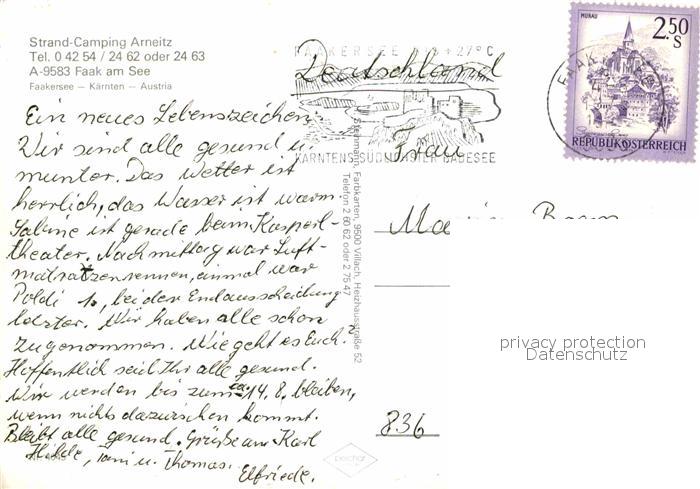 Strand-Camping Arneitz
Tel. 0 42 54 / 24 62 oder 24 63
A-9583 Faak am See
Faakersee – Kärnten – Austria
Ein neues Lebenszeichen.
Wir sind alle gesund u.
munter. Das Wetter ist
herrlich, das Wasser ist warm.
Sabine ist gerade beim Kasperl-
theater. Nachmittag war Luft-
matratzenrennen, einmal war
Poldi 1., bei der Endausscheidung
letzter. Wir haben alle schon
zugenommen. Wie geht es Euch?
Hoffentlich seid Ihr alle gesund.
Wir werden bis zum ca. 14. 8. bleiben,
wenn nichts dazwischen kommt.
Bleibt alle gesund. Grüße an Karl
Hilde, Toni u. Thomas.
Elfriede.
Steinmann, Farbkarten, 9500 Villach, Heizhausstraße 52
Telefon 2 80 62 oder 2 75 47
FAAKERSEE +27°C
KÄRNTENS SÜDLICHSTER BADESEE
FAAK
MURAU
2.50
S
REPUBLIK ÖSTERREICH
Deutschland
Frau
Ma
836
privacy protection
Datenschutz